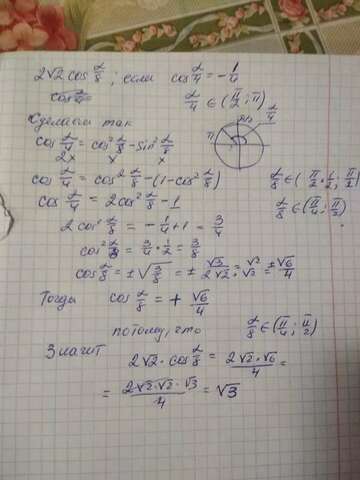 2√2 cos α/8 ; если cos α/4 = -1/4
α/4 ∈ (π/2 ; π)
Сделаем так
cos α/4 = cos² α/8 - sin² α/8
2x x x
cos α/4 = cos² α/8 - (1 - cos² α/8)
α/8 ∈ (π/2 · 1/2 ; π/2)
cos α/4 = 2cos² α/8 - 1
α/8 ∈ (π/4 ; π/2)
2 cos² α/8 = -1/4 + 1 = 3/4
cos² α/8 = 3/4 · 1/2 = 3/8
cos α/8 = ± √(3/8) = ± √3/(2√2) · √2/√2 = ± √6/4
Тогда cos α/8 = + √6/4
потому, что α/8 ∈ (π/4 ; π/2)
Значит
2√2 · cos α/8 = (2√2 · √6)/4 =
= (2√2 · √2 · √3)/4 = √3